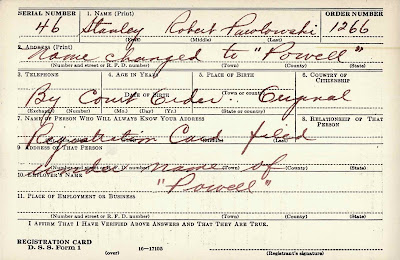 SERIAL NUMBER 1. NAME (Print) ORDER NUMBER
46 Stanley Robert Pawlowski 1266
(First) (Middle) (Last)
2. ADDRESS (Print)
Name changed to "Powell"
(Number and street or R. F. D. number) (Town) (County) (State)
3. TELEPHONE 4. AGE IN YEARS 5. PLACE OF BIRTH 6. COUNTRY OF CITIZENSHIP
DATE OF BIRTH (Town or county)
By Court Order. Original
(Exchange) (Number) (Mo.) (Day) (Yr.) (State or country)
7. NAME OF PERSON WHO WILL ALWAYS KNOW YOUR ADDRESS 8. RELATIONSHIP OF THAT PERSON
Registration Card filed
9. ADDRESS OF THAT PERSON
under name of
(Number and street or R. F. D. number) (Town) (County) (State)
10. EMPLOYER'S NAME
"Powell"
11. PLACE OF EMPLOYMENT OR BUSINESS
(Number and street or R. F. D. number) (Town) (County) (State)
I AFFIRM THAT I HAVE VERIFIED ABOVE ANSWERS AND THAT THEY ARE TRUE.
REGISTRATION CARD
D. S. S. Form 1 (over) 16—17105 (Registrant's signature)